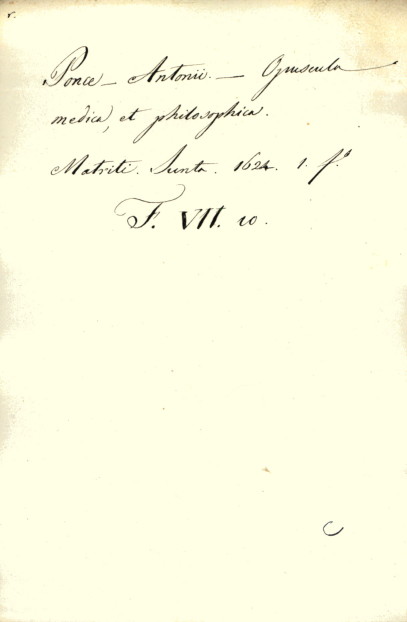 r.
Ponce – Antonii. – Opuscula
medica, et philosophica.
Matriti. Junta. 1624. 1. fº
F. VII. 10.